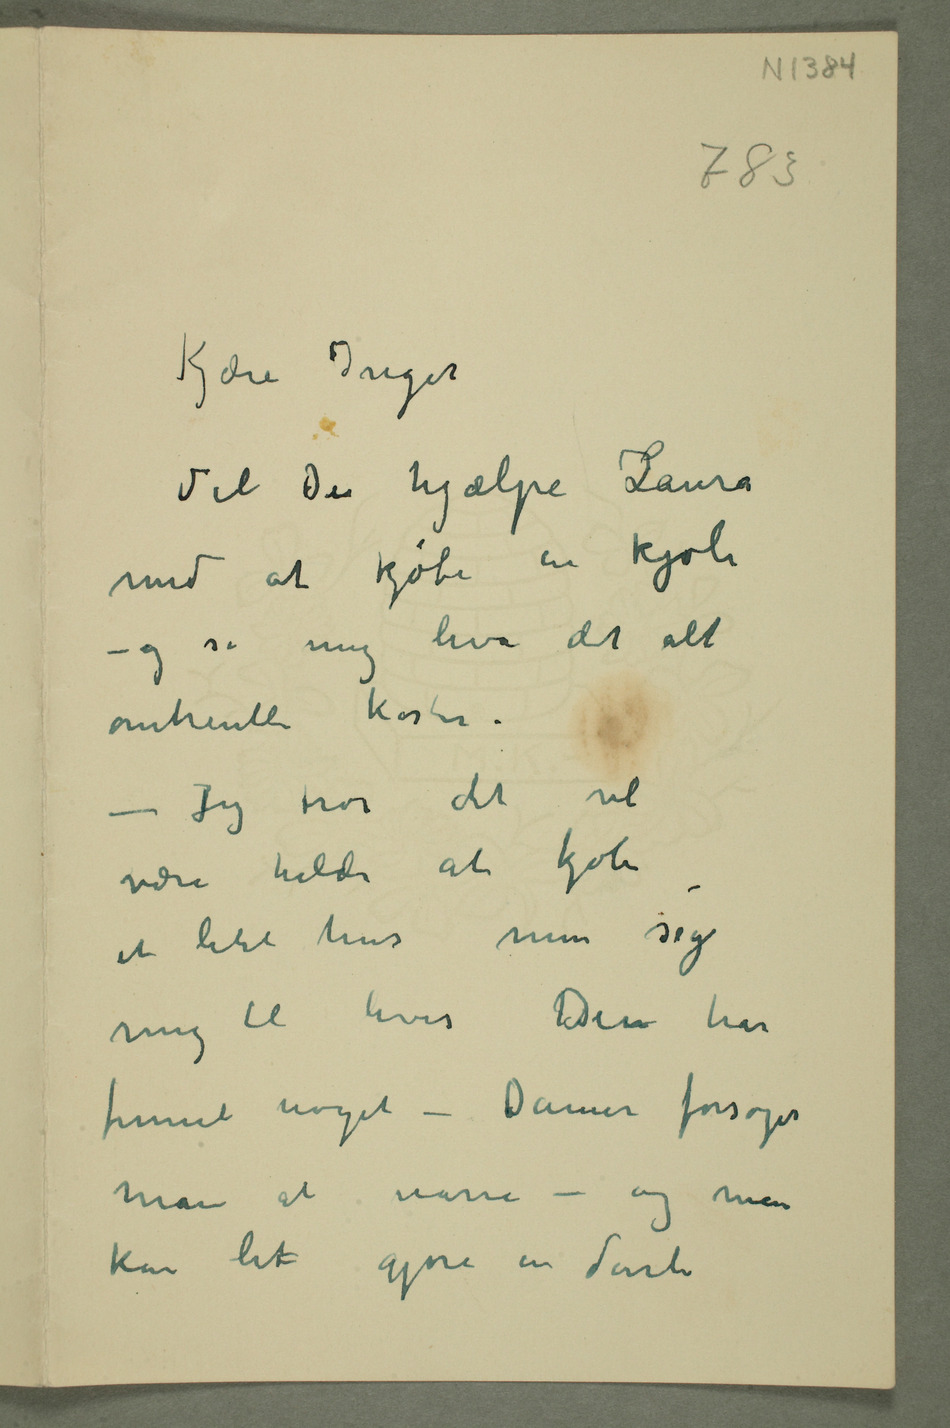 N1384
783
Kjære Inger
Vil Du hjælpe Laura
med at kjøbe en kjole
– og si mig hva det alt
omtrentli koster.
— Jeg tror det vel
være heldi at kjøbe
et litet hus men sig
mig til hvis Du har
funnet noget – Damer forsøger
man at narre – og man
kan let gjøre en dårli